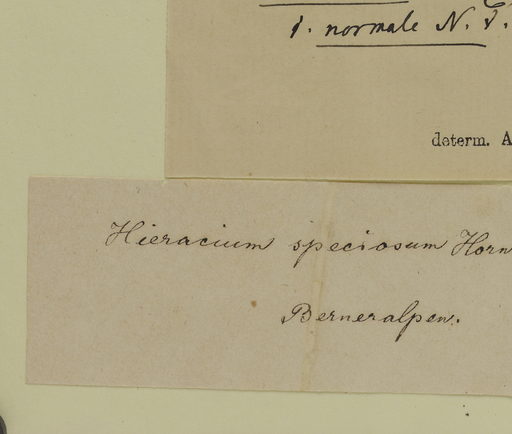 1. normale N. P.
determ. A
Hieracium speciosum Horn
Berneralpen.